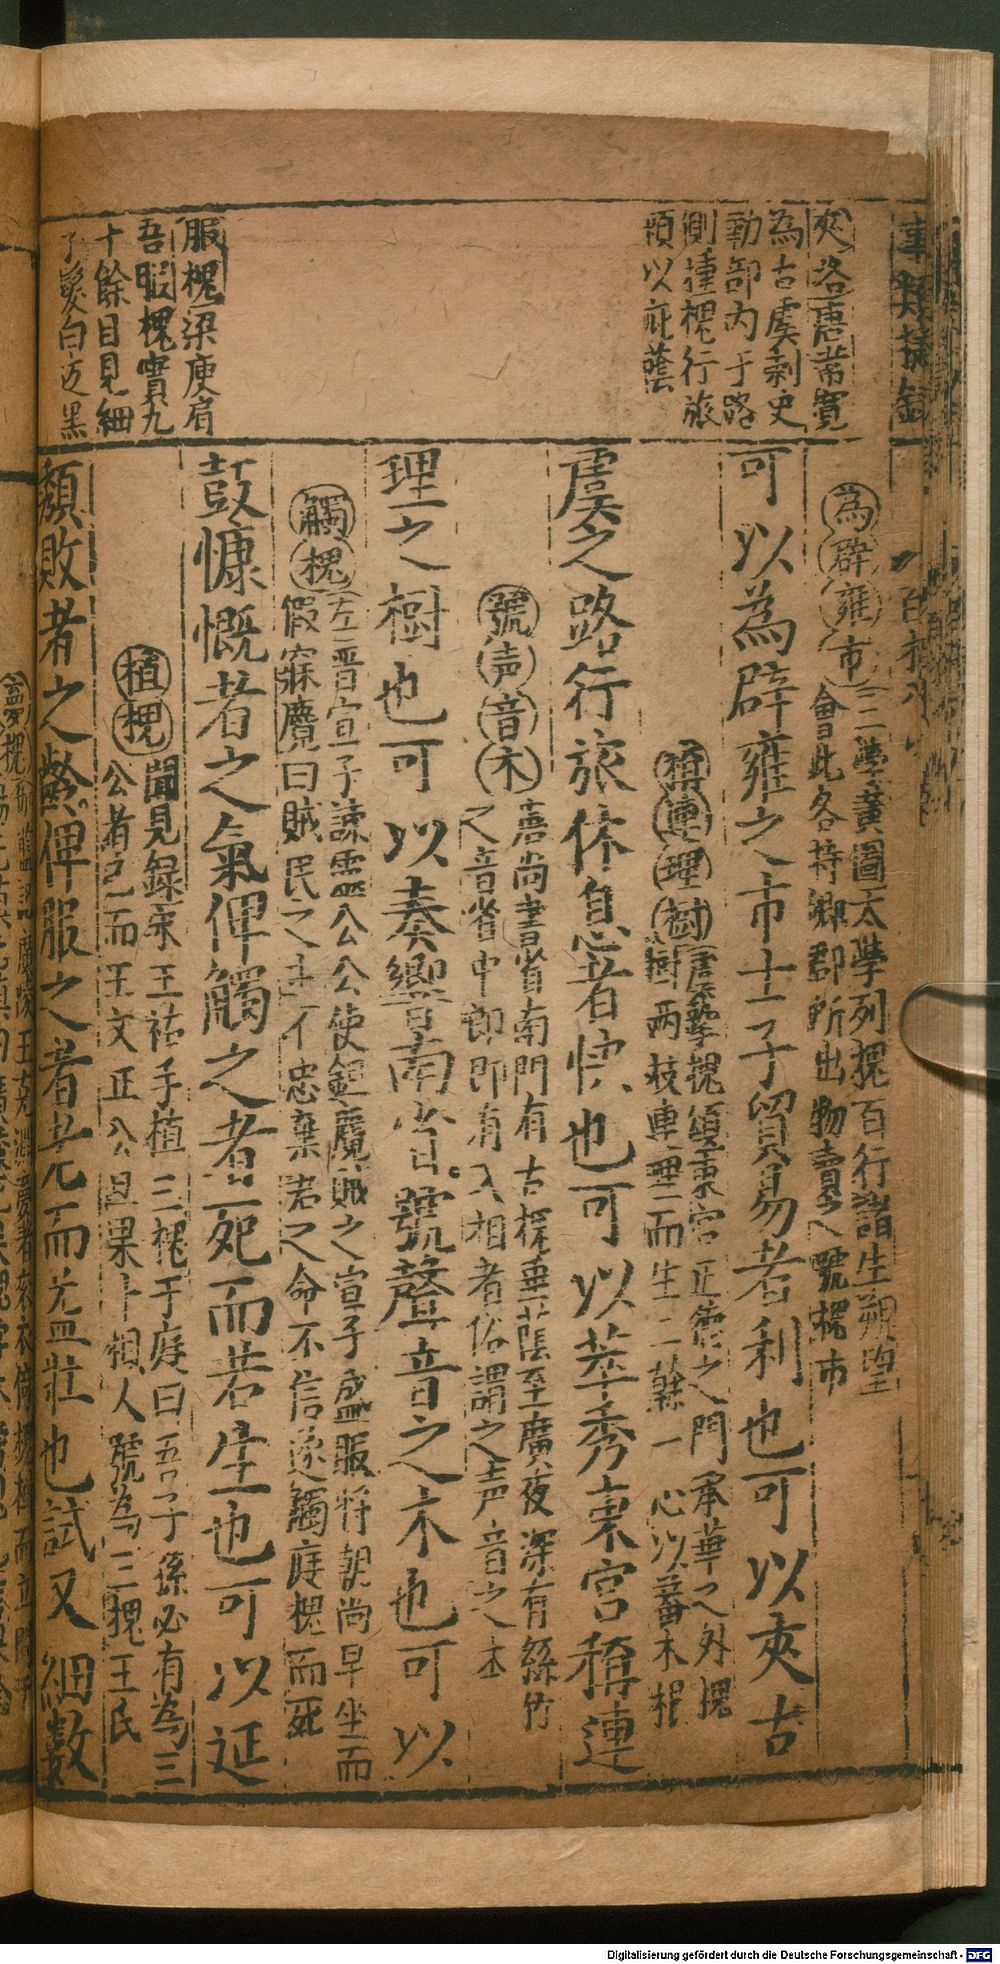 夾洛唐韋寬
為古虞刺史
勤部内于路
側種槐行旅
頼以庇蔭
服槐梁庾肩
吾服槐實九
十餘目見細
字髮白近黑
為辟雍市三
二學黄圖太學列槐百行諸生朔望
會此各持鄉郡所出物賣之號槐市
可以為辟雍之市士子貿易者利也可以夾古
稱連理樹
唐摯槐頌秉宮正德之門承華之外槐
樹兩枝連理而生二幹一心以蕃本根
虞之路行旅休息者快也可以萃秀秉宮稱連
號声音木
唐尚書省南門有古槐垂蔭至廣夜深有絲竹
之音省中即即有入相者俗謂之声音之木
理之樹也可以奏響南省號聲音之木也可以
觸槐
左二晋宣子諫靈公公使鉏麑賊之宣子盛服将朝尚早坐而
假寐麑曰賊民之主不忠棄君之命不信遂觸庭槐而死
鼓慷慨者之氣俾觸之者死而若生也可以延
植槐
聞見録宋王祐手植三槐于庭曰吾子孫必有為三
公者已而王文正公旦果十相人號為三槐王氏
頽敗者之齡俾服之者老而益壯也試又細數
Digitalisierung gefördert durch die Deutsche Forschungsgemeinschaft - DFG